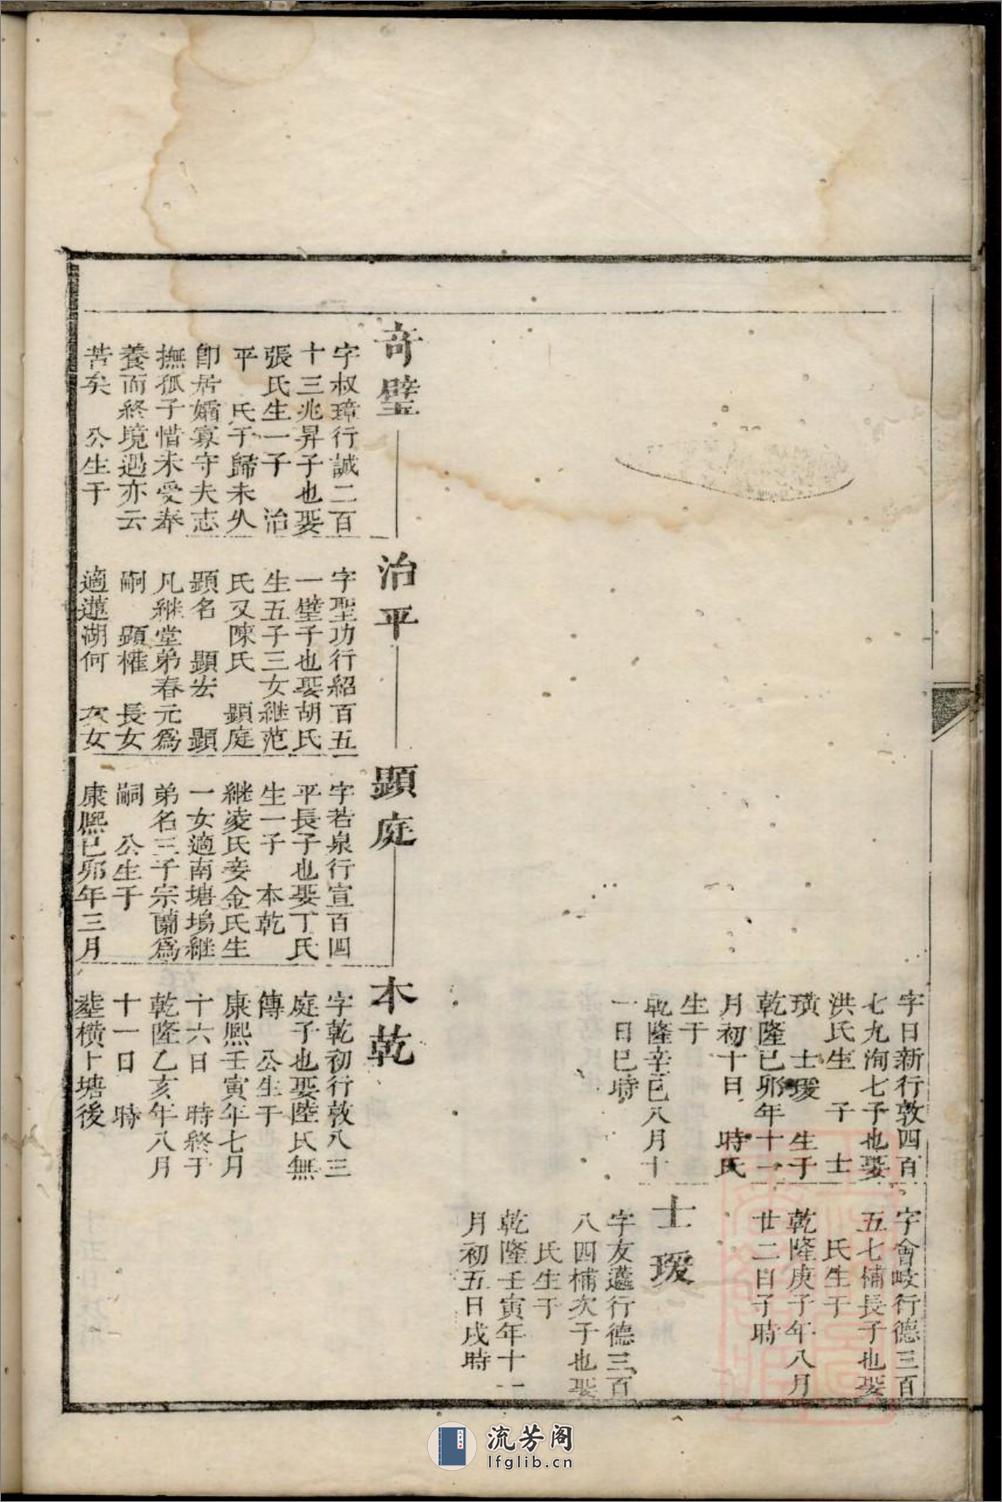 字日新行敦四百
七九洵七子也娶
洪氏生 子 士
璜 士瑗 生于
乾隆己卯年十一
月初十日 時氏
生于
乾隆辛巳八月十
一日巳時
字會岐行德三百
五七補長子也娶
氏生于
乾隆庚子年八月
廿二日子時
士瑗
字友蘧行德三百
八四補次子也娶
氏生于
乾隆壬寅年十一
月初五日戌時
奇璧
字叔璋行誠二百
十三兆昇子也娶
張氏生一子 治
平 氏于歸未久
即居孀寡守夫志
撫孤子惜未受奉
養而終境遇亦云
苦矣 公生于
治平
字聖功行紹百五
一璧子也娶胡氏
生五子三女繼范
氏又陳氏 顯庭
顯名 顯宏 顯
凡繼堂弟春元爲
嗣 顯權 長女
適蓮湖何 次女
顯庭
字若泉行宣百四
平長子也娶丁氏
生一子 本乾
繼凌氏妾金氏生
一女適南塘塢繼
弟名三子宗蘭爲
嗣 公生于
康熙己卯年三月
本乾
字乾初行敦八三
庭子也娶陸氏無
傳 公生于
康熙壬寅年七月
十六日 時終于
乾隆乙亥年八月
十一日 時
塟橫上塘後
流芳阁
lfglib.cn